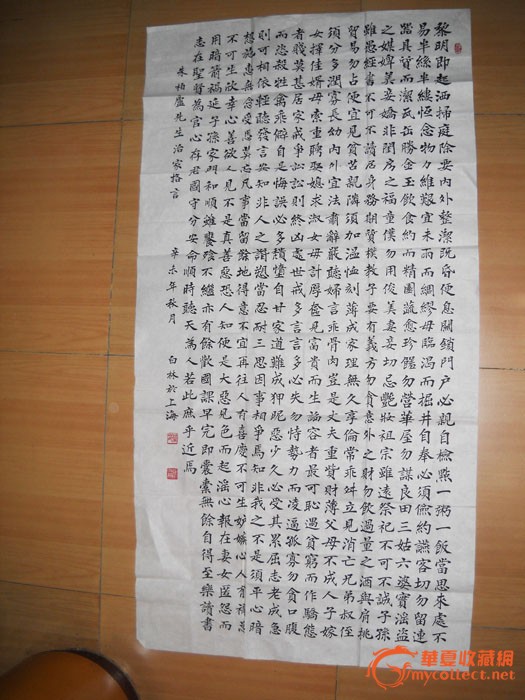 黎明即起洒掃庭除要內外整潔既昏便息關鎖門戶必親自檢點一粥一飯當思來處不
易半絲半縷恆念物力維艱宜未雨而綢繆毋臨渴而掘井自奉必須儉約讌客切勿留連
器具質而潔瓦缶勝金玉飲食約而精園蔬愈珍饈勿營華屋勿謀良田三姑六婆實淫盜
之媒婢美妾嬌非閨房之福童僕勿用俊美妻妾切忌艷妝祖宗雖遠祭祀不可不誠子孫
雖愚經書不可不讀居身務期質樸教子要有義方勿貪意外之財勿飲過量之酒與肩挑
貿易勿占便宜見貧苦親鄰須加溫恤刻薄成家理無久享倫常乖舛立見消亡兄弟叔侄
須分多潤寡長幼內外宜法肅辭嚴聽婦言乖骨肉豈是丈夫重貲財薄父母不成人子嫁
女擇佳婿毋索重聘娶媳求淑女毋計厚奩見富貴而生諂容者最可恥遇貧窮而作驕態
者賤莫甚居家戒爭訟訟則終凶處世戒多言言多必失勿恃勢力而凌逼孤寡勿貪口腹
而恣殺牲禽乖僻自是悔誤必多頹惰自甘家道難成狎昵惡少久必受其累屈志老成急
則可相依輕聽發言安知非人之譖愬當忍耐三思因事相爭焉知非我之不是須平心暗
想施惠無念受恩莫忘凡事當留餘地得意不宜再往人有喜慶不可生妒嫉心人有禍患
不可生欣幸心善欲人見不是真善惡恐人知便是大惡見色而起淫心報在妻女匿怨而
用暗箭禍延子孫家門和順雖饔飧不繼亦有餘歡國課早完即囊橐無餘自得至樂讀書
志在聖賢為官心存君國守分安命順時聽天為人若此庶乎近焉
朱柏廬先生治家格言
辛未年秋月 白林於上海
華夏收藏網
mycollect.net